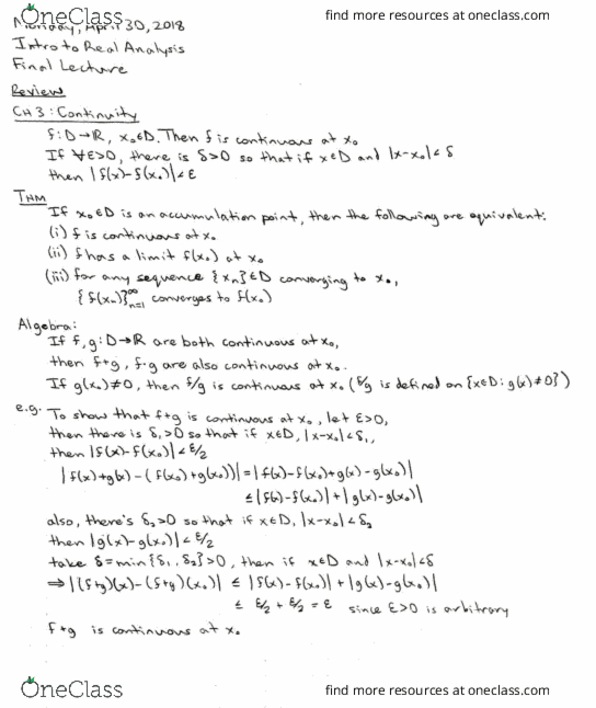 OneClass
find more resources at oneclass.com
Monday, April 30, 2018
Intro to Real Analysis
Final Lecture
Review
CH 3: Continuity
f: D→ℝ, x₀∈D. Then f is continuous at x₀
If ∀ε>0, there is δ>0 so that if x∈D and |x-x₀|<δ
then |f(x)-f(x₀)|<ε
THM
If x₀∈D is an accumulation point, then the following are equivalent:
(i) f is continuous at x₀
(ii) f has a limit f(x₀) at x₀
(iii) for any sequence {xₙ}∈D converging to x₀,
{f(xₙ)}ₙ₌₁^∞ converges to f(x₀)
Algebra:
If f,g: D→ℝ are both continuous at x₀,
then f+g, f·g are also continuous at x₀.
If g(x₀)≠0, then f/g is continuous at x₀ (f/g is defined on {x∈D: g(x)≠0})
e.g. To show that f+g is continuous at x₀, let ε>0,
then there is δ₁>0 so that if x∈D, |x-x₀|<δ₁,
then |f(x)-f(x₀)|<ε/2
|f(x)+g(x)-(f(x₀)+g(x₀))|=|f(x)-f(x₀)+g(x)-g(x₀)|
≤|f(x)-f(x₀)|+|g(x)-g(x₀)|
also, there's δ₂>0 so that if x∈D, |x-x₀|<δ₂
then |g(x)-g(x₀)|<ε/2
take δ=min{δ₁,δ₂}>0, then if x∈D and |x-x₀|<δ
⇒|(f+g)(x)-(f+g)(x₀)| ≤ |f(x)-f(x₀)|+|g(x)-g(x₀)|
≤ ε/2 + ε/2 = ε since ε>0 is arbitrary
f+g is continuous at x₀
OneClass
find more resources at oneclass.com